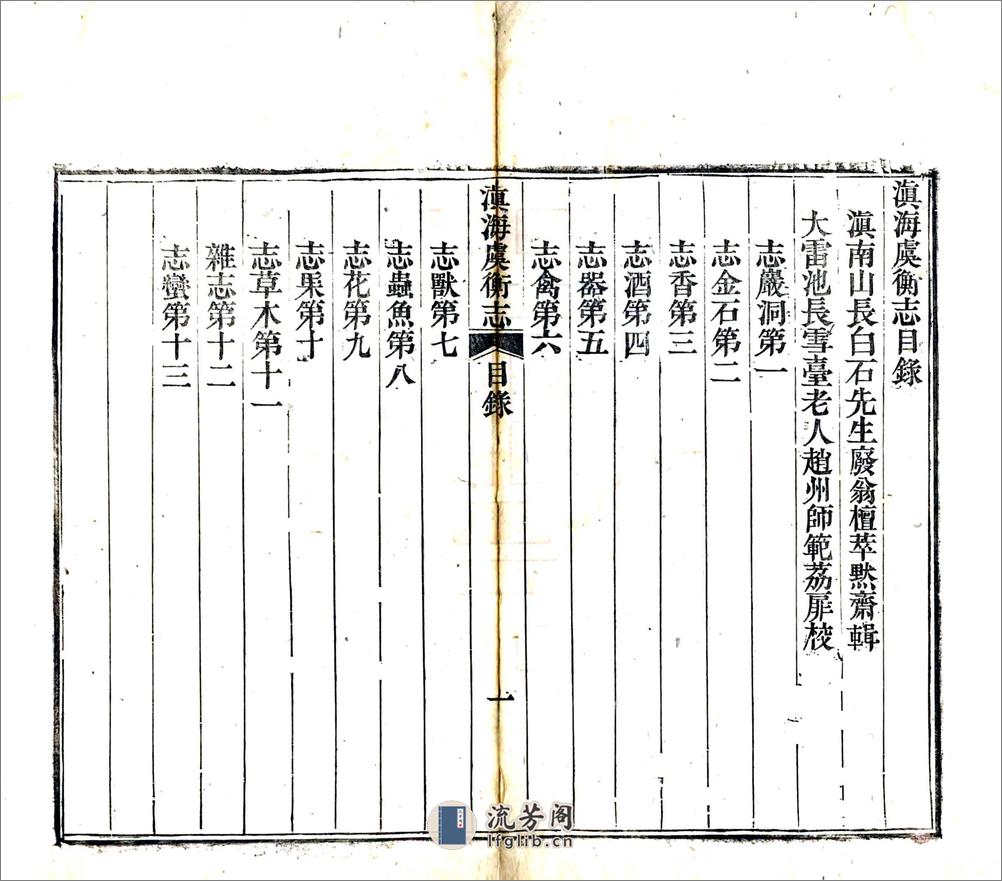 滇海虞衡志目錄
滇南山長白石先生廢翁檀萃默齋輯
大雷池長雪臺老人趙州師範荔扉校
志巖洞第一
志金石第二
志香第三
志酒第四
志器第五
志禽第六
滇海虞衡志 目錄 一
志獸第七
志蟲魚第八
志花第九
志果第十
志草木第十一
雜志第十二
志蠻第十三
流芳阁
lfglib.cn